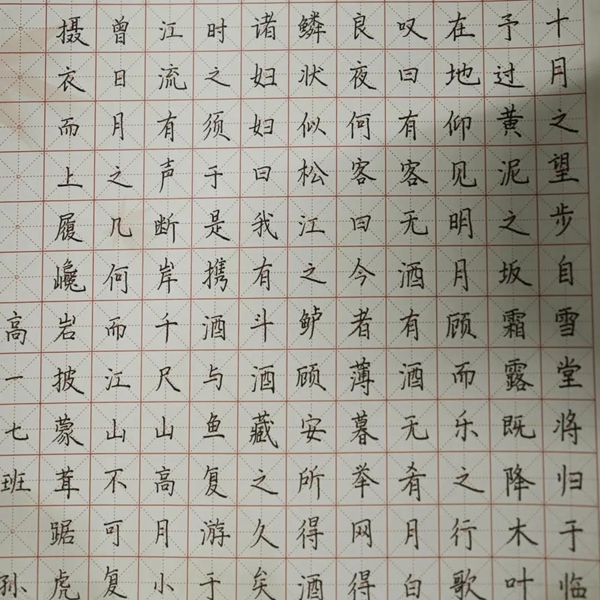 十月之望步自雪堂将归于临
予过黄泥之坂霜露既降木叶
在地仰见明月顾而乐之行歌
叹曰有客无酒有酒无肴月白
良夜何客曰今者薄暮举网得
鳞状似松江之鲈顾安所得酒
诸妇妇曰我有斗酒藏之久矣
时之须于是携酒与鱼复游于
江流有声断岸千尺山高月小
曾日月之几何而江山不可复
摄衣而上履巉岩披蒙茸踞虎
高一七班 孙